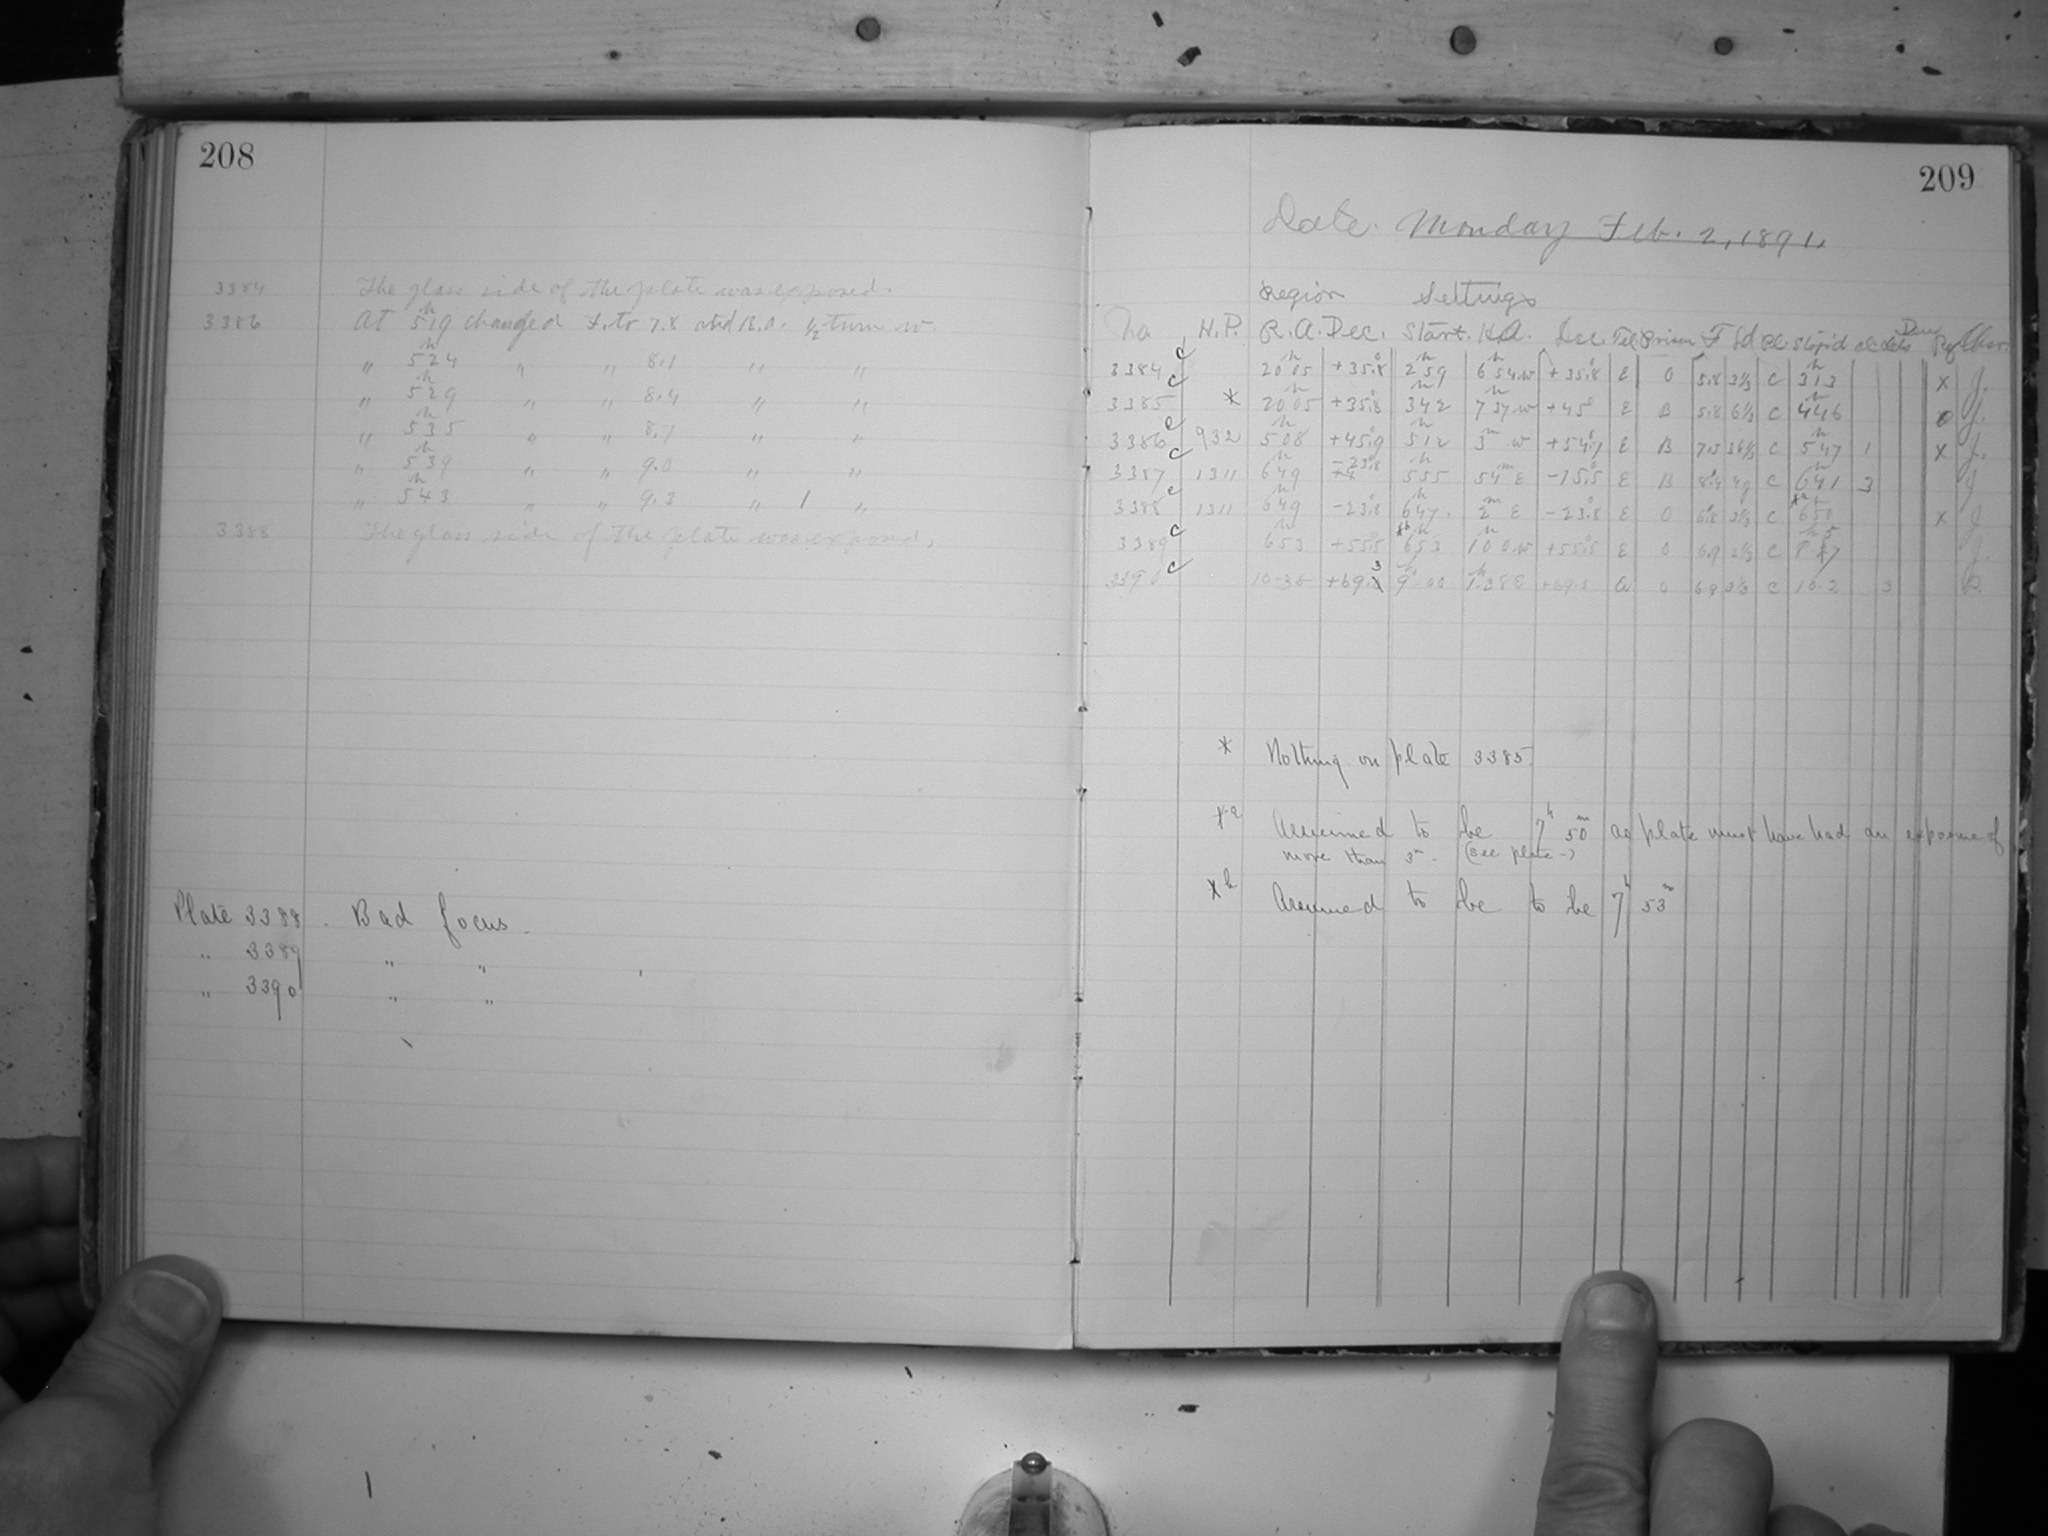 208
3384 The glass side of the plate was exposed.
3386 At 5h19 changed F. to 7.8 and R.A. 1/2 turn w.
" 5h24 " " 8.1 " "
" 5h29 " " 8.4 " "
" 5h35 " " 8.7 " "
" 5h39 " " 9.0 " "
" 5h43 " " 9.3 " 1 "
3388 The glass side of the plate was exposed.
Plate 3388. Bad focus.
" 3389 " "
" 3390 " "
209
Date. Monday Feb. 2, 1891.
Region Settings
No. H.P. R.A. Dec. Start. H.A. Dec. Tel Prism F Pl Stop'd Obsr.
3384 c 20h05 +35°.8 2h59 6h54 w +35°.8 E O 5.8 3⅓ C 3h13 x J.
3385 c * 20h05 +35°.8 3h42 7h37 w +45° E B 5.8 6⅓ C 4h46 J.
3386 c 932 5h08 +45°.9 5h12 3m w +54°.7 E B 7.5 36⅓ C 5h47 1 x J.
3387 c 1311 6h49 -23°.8 5h55 54m E -15°.5 E B 8.4 49 C 6h41 3 J
3388 c 1311 6h49 -23°.8 6h47. 2m E -23°.8 E O 6.8 3⅓ C xa 6h50 x J
3389 c 6h53 +55°.5 xb 6h53 1h00 w +55°.5 E O 6.9 3⅓ C J.
3390 c 10-36 +69.3 9h-00 1h38 E +69.1 a O 6.8 3⅓ C 10-2 3
* Nothing on plate 3385.
xa Assumed to be 7h 50m as plate must have had an exposure of
more than 3m. (See plate-)
xb Assumed to be to be 7h 53m